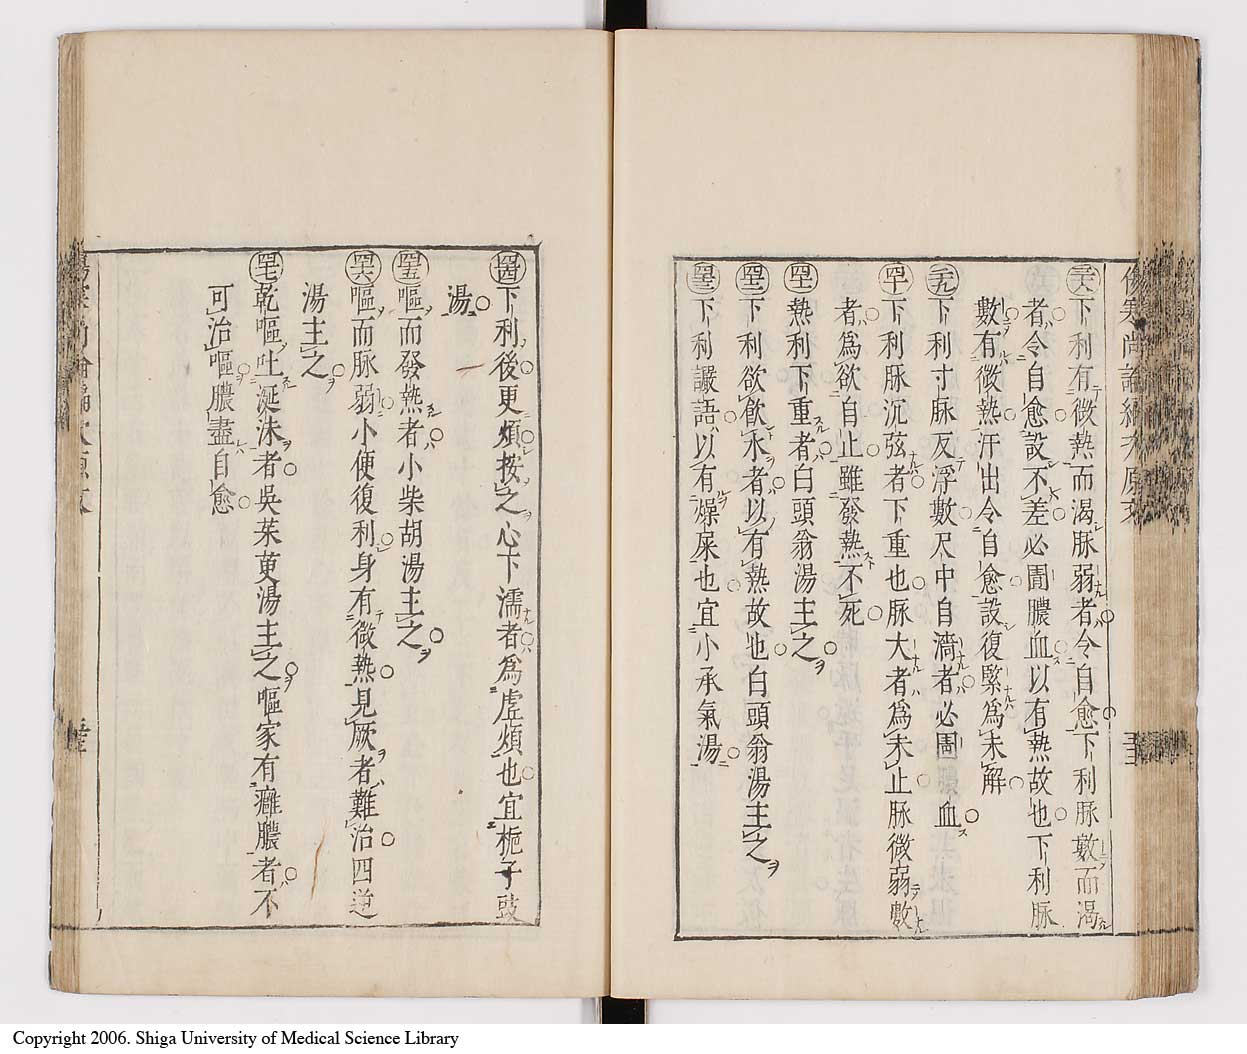 傷寒尚論編次原文
㊳下利有微熱而渴脉弱者令自愈下利脉數而渴
者令自愈設不差必圊膿血以有熱故也下利脉
數有微熱汗出令自愈設復緊爲未解
㊴下利寸脉反浮數尺中自濇者必圊膿血
㊵下利脉沉弦者下重也脉大者爲未止脉微弱數
者爲欲自止雖發熱不死
㊶熱利下重者白頭翁湯主之
㊷下利欲飮水者以有熱故也白頭翁湯主之
㊸下利讝語以有燥屎也宜小承氣湯
㊹下利後更煩按之心下濡者爲虛煩也宜梔子豉
湯
㊺嘔而發熱者小柴胡湯主之
㊻嘔而脉弱小便復利身有微熱見厥者難治四逆
湯主之
㊼乾嘔吐涎沫者吳茱萸湯主之嘔家有癰膿者不
可治嘔膿盡自愈
Copyright 2006. Shiga University of Medical Science Library